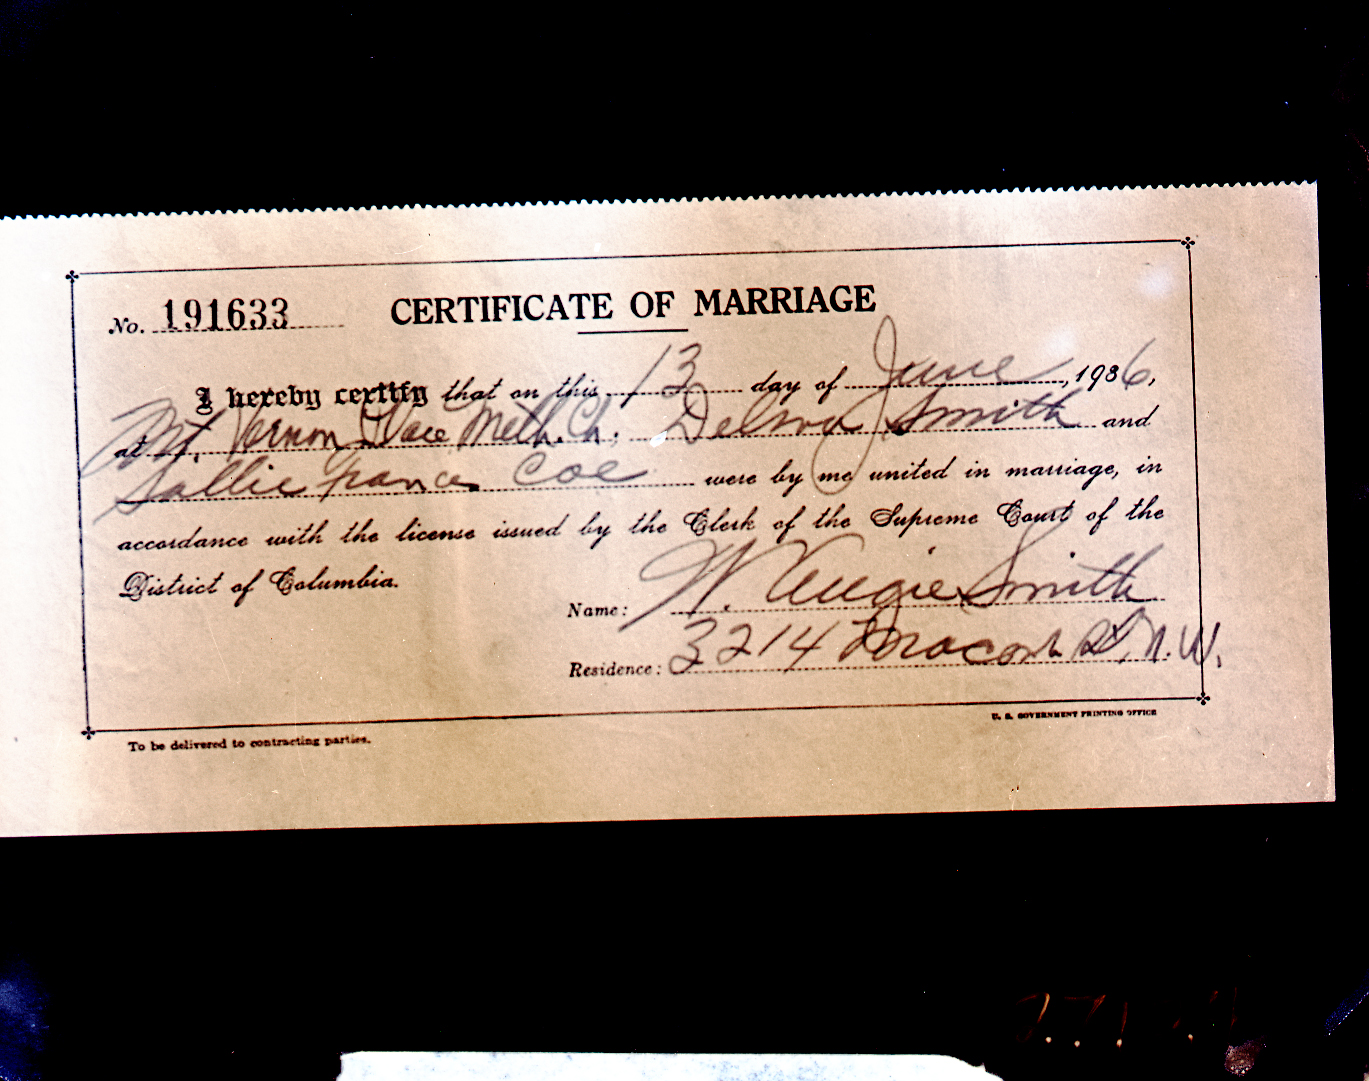 No. 191633 CERTIFICATE OF MARRIAGE
I hereby certify that on this 13 day of June, 1936,
at Mt. Vernon Place Meth. Ch. Delma Smith and
Sallie Frances Coe were by me united in marriage, in
accordance with the license issued by the Clerk of the Supreme Court of the
District of Columbia.
Name: W. Angie Smith
Residence: 3214 Macomb St. N.W.
U. S. GOVERNMENT PRINTING OFFICE
To be delivered to contracting parties.